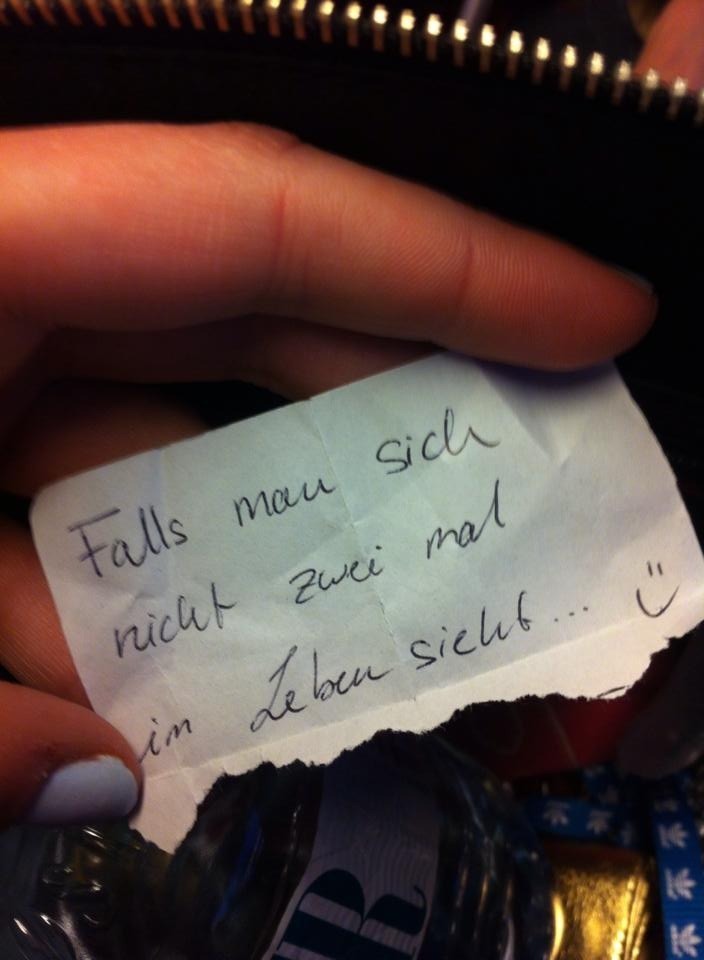 Falls man sich
nicht zwei mal
im Leben sieht... :)
R